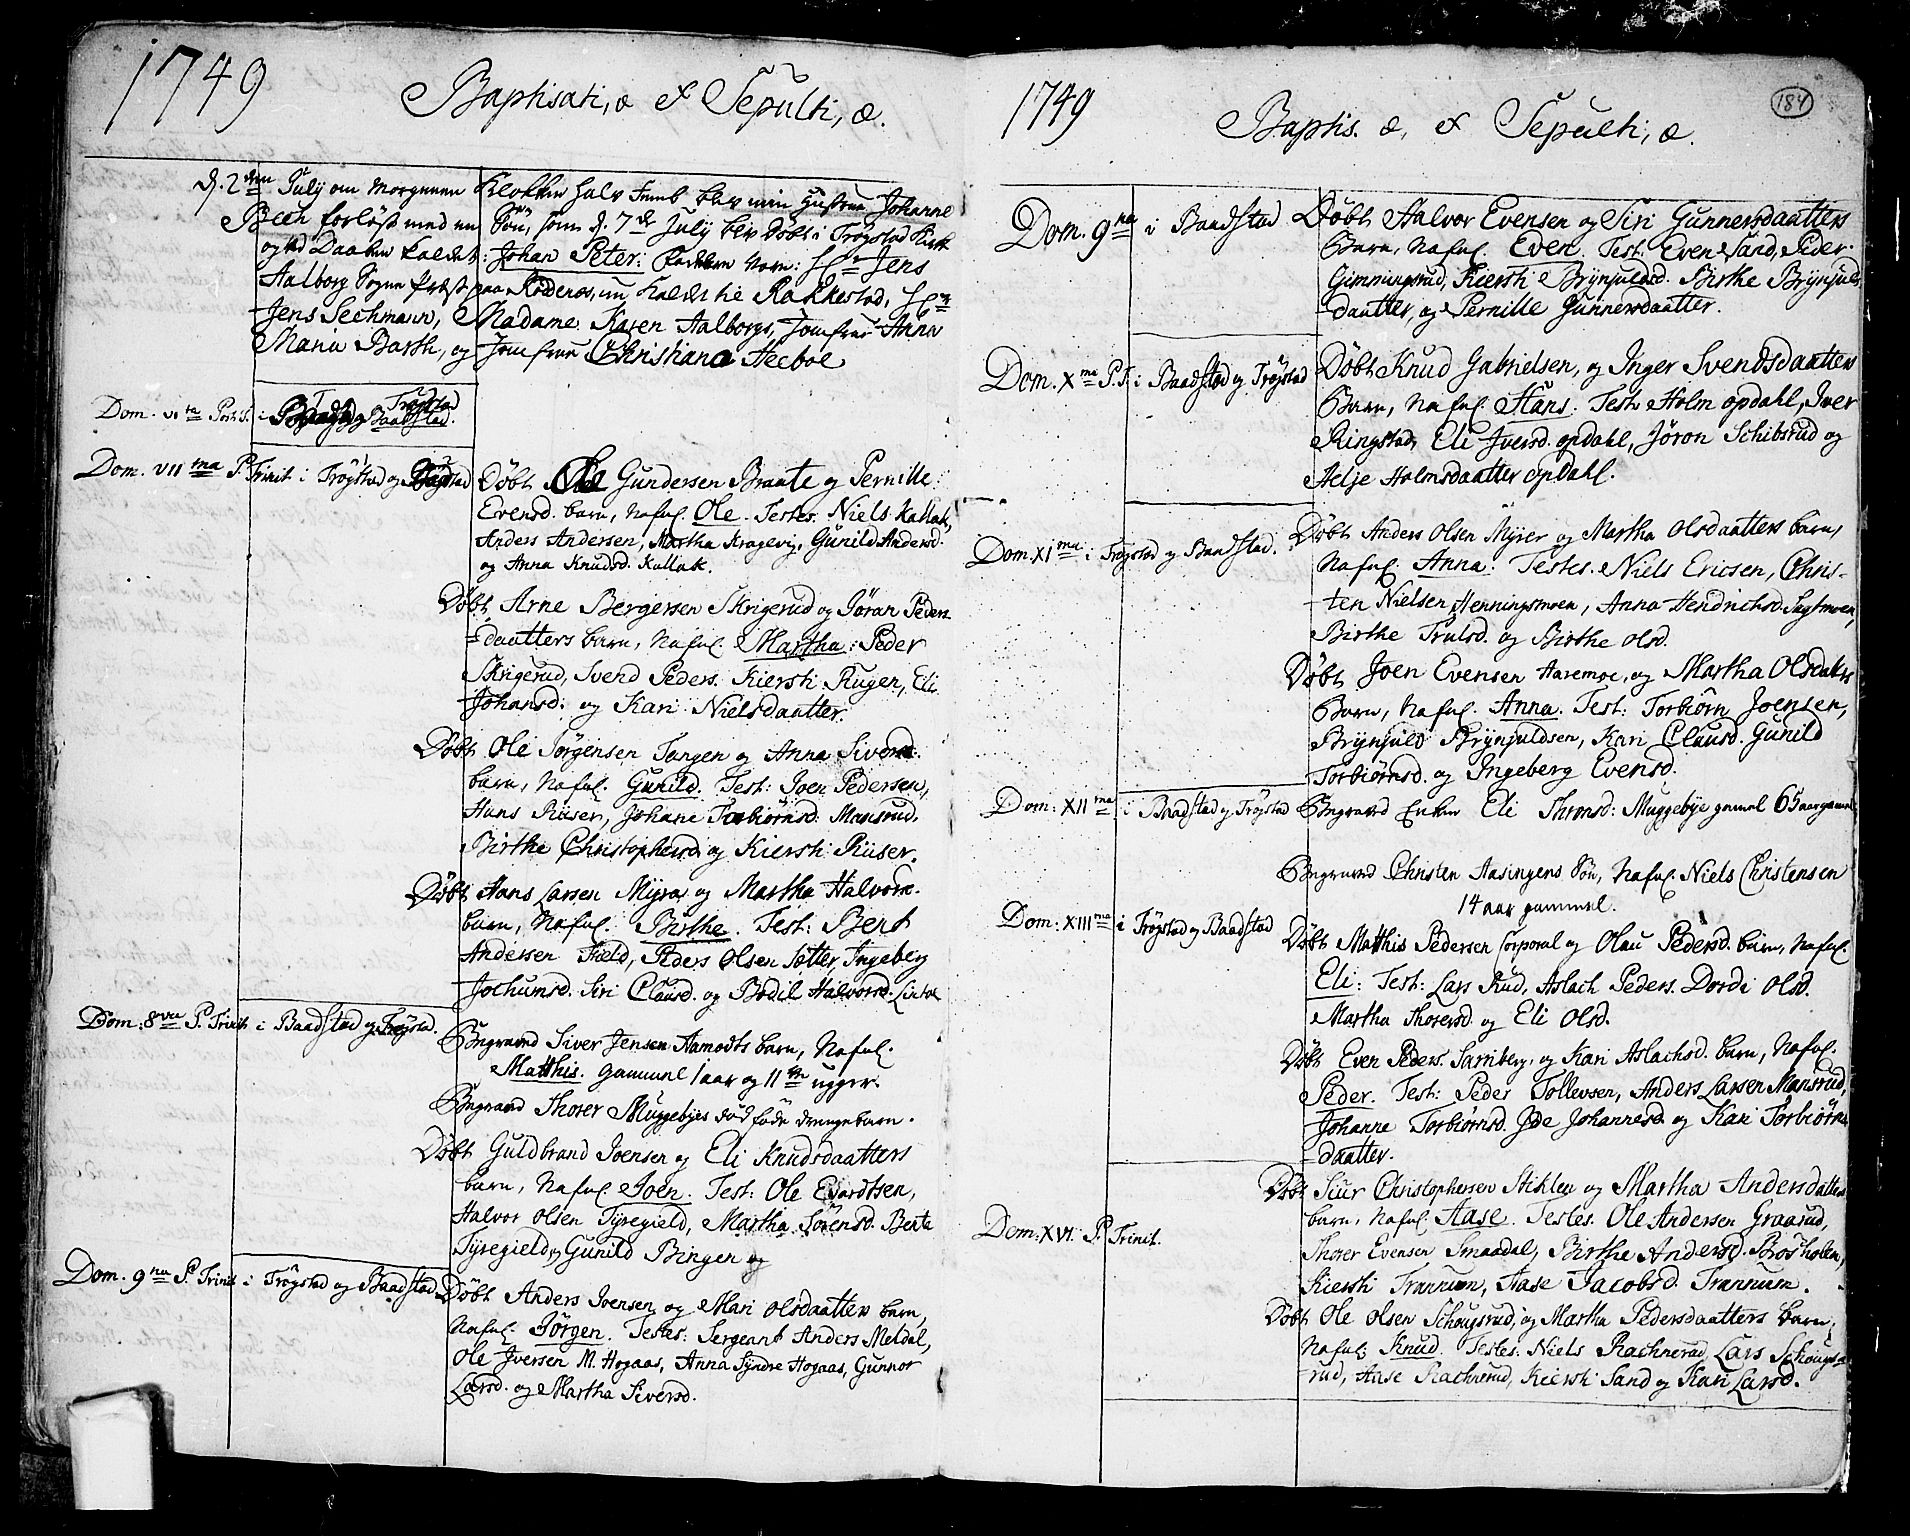 1749
Baptisati, æ et Sepulti, æ.
d. 2den July om Morgenen Klokken halv Femb blev min Hustrue Johanne
Bech forløst med en Søn, som d. 7de July blev døbt i Trøgstad Kirke
og ved Daaben kaldet: Johan Peter: Faddere vare: Hr Jens
Aalborg Sogne Præst paa Rødenæs, nu kaldet til Rakkestad, Hr
Jens Sechmann, Madame Karen Aalborgs, Jomfrue Anna
Maria Barth, og Jomfrue Christiana Heeboe
Dom. VIta Post T. i Trøgstad
og Baadstad.
Dom. VIIma P. Trinit i Trøgstad og Baadstad
Døbt Ole Gundersen Braate og Pernille
Evensd. barn, Nafnl. Ole. Testes. Niels Kallak,
Anders Andersen, Martha Kragevig, Gunild Andersd.
og Anna Knudsd. Kallak.
Døbt Arne Bergersen Skrigerud og Jøran Peders
daatters barn, Nafnl. Martha: Peder
Skrigerud, Svend Peders. Kiersti Rugen, Eli
Johansd: og Kari Nielsdaatter.
Døbt Ole Jørgensen Tangen og Anna Siversd:
barn, Nafnl. Gunild. Test: Joen Pedersen,
Hans Riiser, Johane Torbiørnsd: Mansrud,
Birthe Christophersd. og Kiersti Riiser.
Døbt Hans Larsen Myra og Martha Halvors.
barn, Nafnl. Birthe. Test: Bent
Andersen Hæld, Peders Olsen Sætter, Ingeberg
Jochumsd. Siri Clausd. og Bodil Halvorsd.
Dom: 8va P. Trinit i Baadstad og Trøgstad.
Begraved Siver Jensen Aamodts barn, Nafnl.
Matthis. gammel 1 aar og 11 uger.
Begraved Thorer Muggebyes død føde drengebarn.
Døbt Guldbrand Joensen og Eli Knudsdaatters
barn, Nafnl. Joen. Test: Ole Evardtsen,
Halvor Olsen Tyregield, Martha Sørensd. Berte
Tyregield, Gunild Bingen og
Dom. 9na P. Trinit i Trøgstad og Baadstad
Døbt Anders Joensen og Mari Olsdaatters barn,
Nafnl. Jørgen. Testes: Sergeant Anders Meldal,
Ole Iversen M. Hogaas, Anna Syndre Hogaas, Gunnor
Larsd. og Martha Siversd.
1749
184
Baptis. æ, et Sepulti, æ.
Dom. 9na i Baadstad
Døbt Halvor Evensen og Siri Gunnersdaatters
Barn, Nafnl. Even. Test: Even Sand, Peder
Gimmingsrud, Kiersti Brynjulds. Birthe Brynjuls
daatter, og Pernille Gunnersdaatter.
Dom. Xma P. T. i Baadstad og Trøgstad
Døbt Knud Gabrielsen, og Inger Svendsdaatters
Barn, Nafnl. Hans. Test: Holm Opdahl, Iver
Ringstad, Eli Iversd. Opdahl, Jøron Schibsrud og
Aelje Holmsdaatter Opdahl.
Dom. XIma i Trøgstad og Baadstad.
Døbt Anders Olsen Myrer og Martha Olsdaatters barn,
Nafnl. Anna. Testes. Niels Ericsen, Chris-
ten Nielsen Henningsmoen, Anna Hendrichsd. Sagtmoen,
Birthe Trulsd. og Birthe Olsd.
Døbt Joen Evensen Haremoe, og Martha Olsdatters
Barn, Nafnl. Anna. Test: Torbiørn Joensen,
Brynjuld Brynjuldsen, Kari Clausd. Gunild
Torbiørnsd. og Ingeberg Evensd.
Dom: XIIma i Baadstad og Trøgstad
Begraved Enken Eli Thronsd: Muggebye gamel 65 aar gamel
Begraved Christen Aasingens Søn, Nafnl. Niels Christensen
14 aar gammel.
Dom: XIIIma i Trøgstad og Baadstad
Døbt Matthis Pedersen Corporal og Olau Pedersd. barn, Nafnl.
Eli: Test: Lars Rud, Aslach Peders. Dordi Olsd.
Martha Thorersd. og Eli Olsd.
Døbt Even Peders. Sarniberg. og Kari Aslachsd. barn, Nafnl.
Peder. Test: Peder Tollevsen, Anders Larsen Mansrud,
Johanne Torbiørnsd. Ide Johannesd. og Kari Torbiørns
daatter.
Dom: XVI. P. Trinit.
Døbt Siur Christophersen Stiklen og Martha Andersdatters
barn, Nafnl. Aase. Testes. Ole Andersen Graarud,
Thorer Evensen Smaadal, Birthe Andersd. Brosholen,
Kiersti Trannum, Aase Jacobsd. Trannum.
Døbt Ole Olsen Schougsrud, og Martha Pedersdaatters barn,
Nafnl: Knud. Testes. Niels Rachnerud, Lars Schougs-
rud, Aase Rachnerud, Kiersti Sand og Kari Larsd.